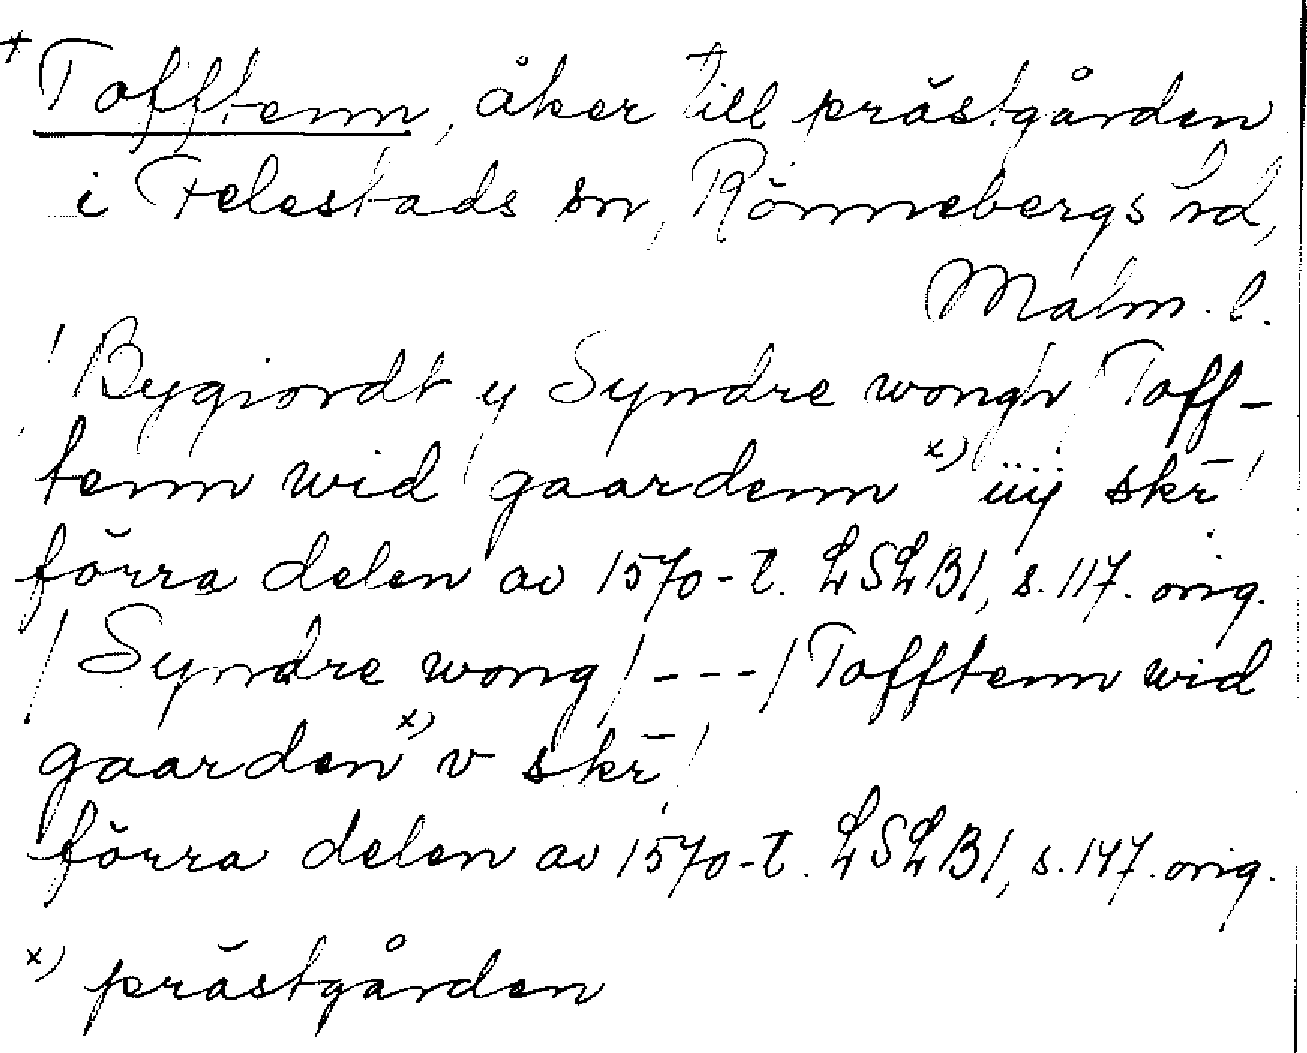 + Tofftenn, åker till prästgården
i Felestads sn, Rönnebergs hd,
Malm. l.
! Bygiordt y Syndre wongh / Toff-
tenn wid gaardenn x) iiij skr̄ !
förra delen av 1570-t. LSLB1, s. 117. orig.
/ Syndre wong / --- / Tofftenn wid
gaarden x) v skr̄ !
förra delen av 1570-t. LSLB1, s. 147. orig.
x) prästgården